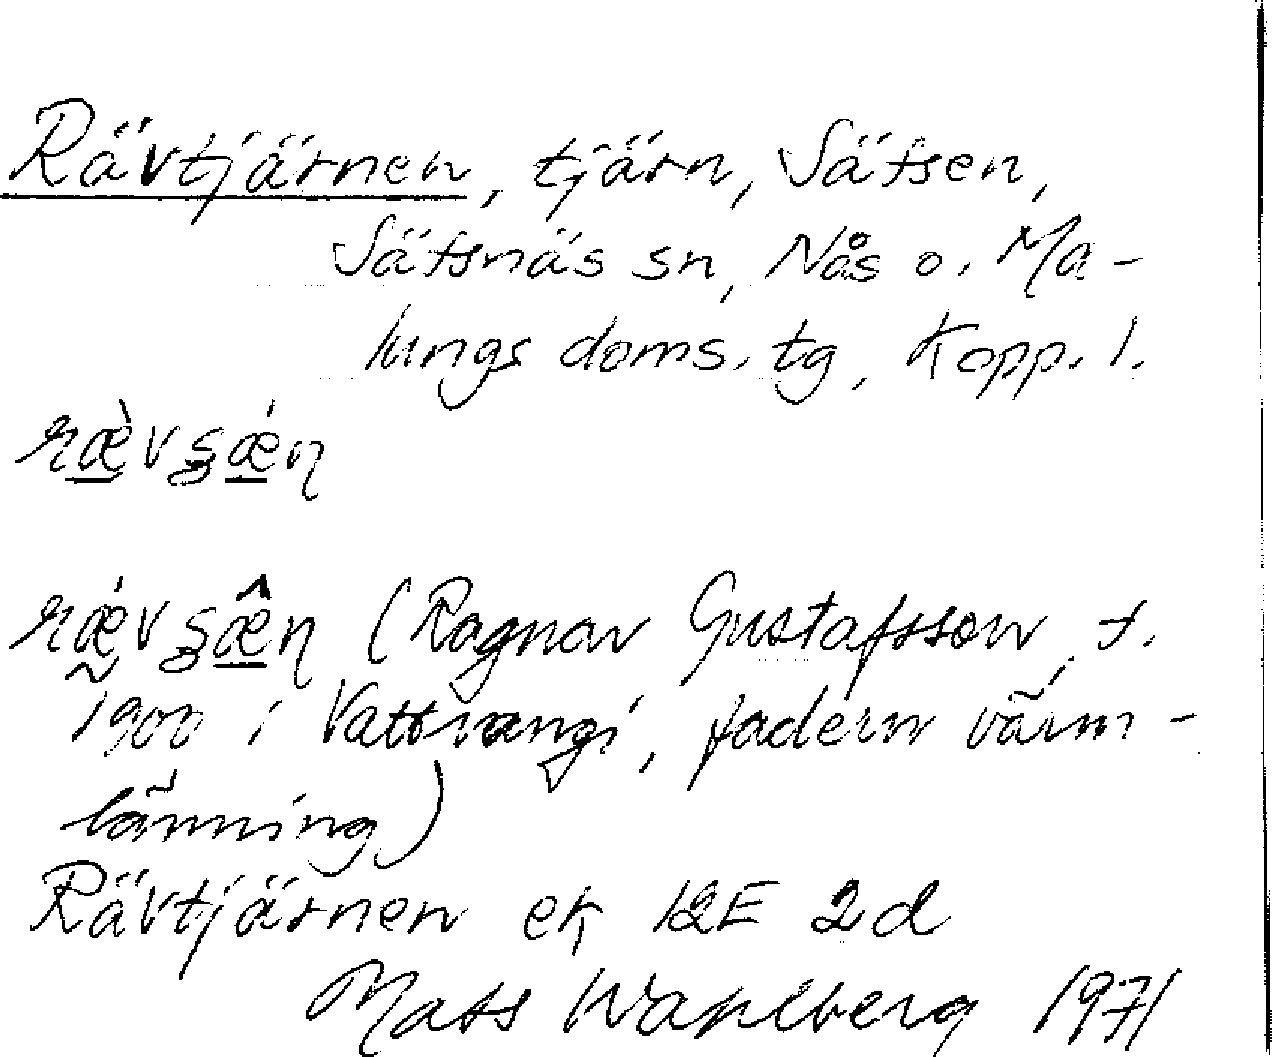 Rävtjärnen, tjärn, Sätsen,
Sätsnäs sn, Nås o. Ma-
lungs doms. tg, Kopp. l.
Rävtjärnen ek 12E 2d
(Ragnar Gustafsson, f.
1900 i , fadern värm-
länning)
Mats Wahlberg 1971